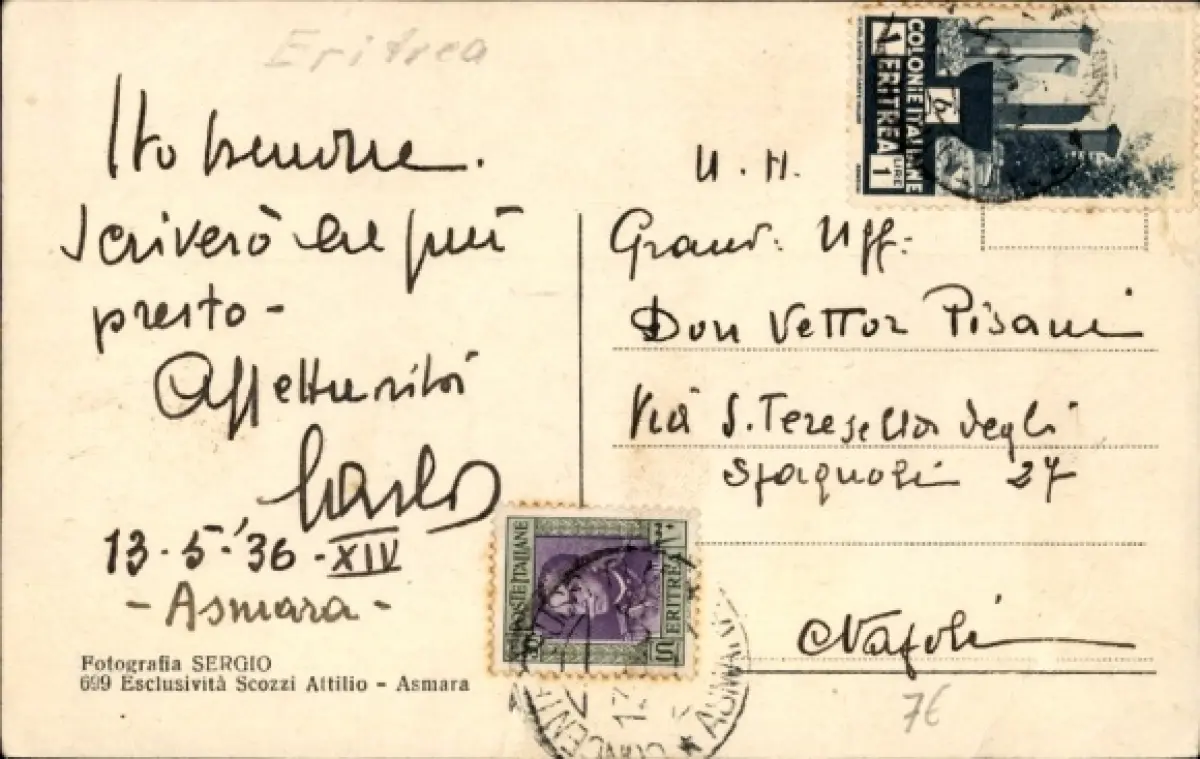 Eritrea
Sto benone.
Scriverò al più
presto -
Affettuosità
Carlo
13-5-'36-XIV
- Asmara -
Fotografia SERGIO
699 Esclusività Scozzi Attilio - Asmara
COLONIE ITALIANE
ERITREA
LIRE
1
U. H.
Grand. Uff.
Don Vettor Pisani
Via S. Teresella degli
Spagnoli 27
Napoli
7€
POSTE ITALIANE
ERITREA
ASMARA